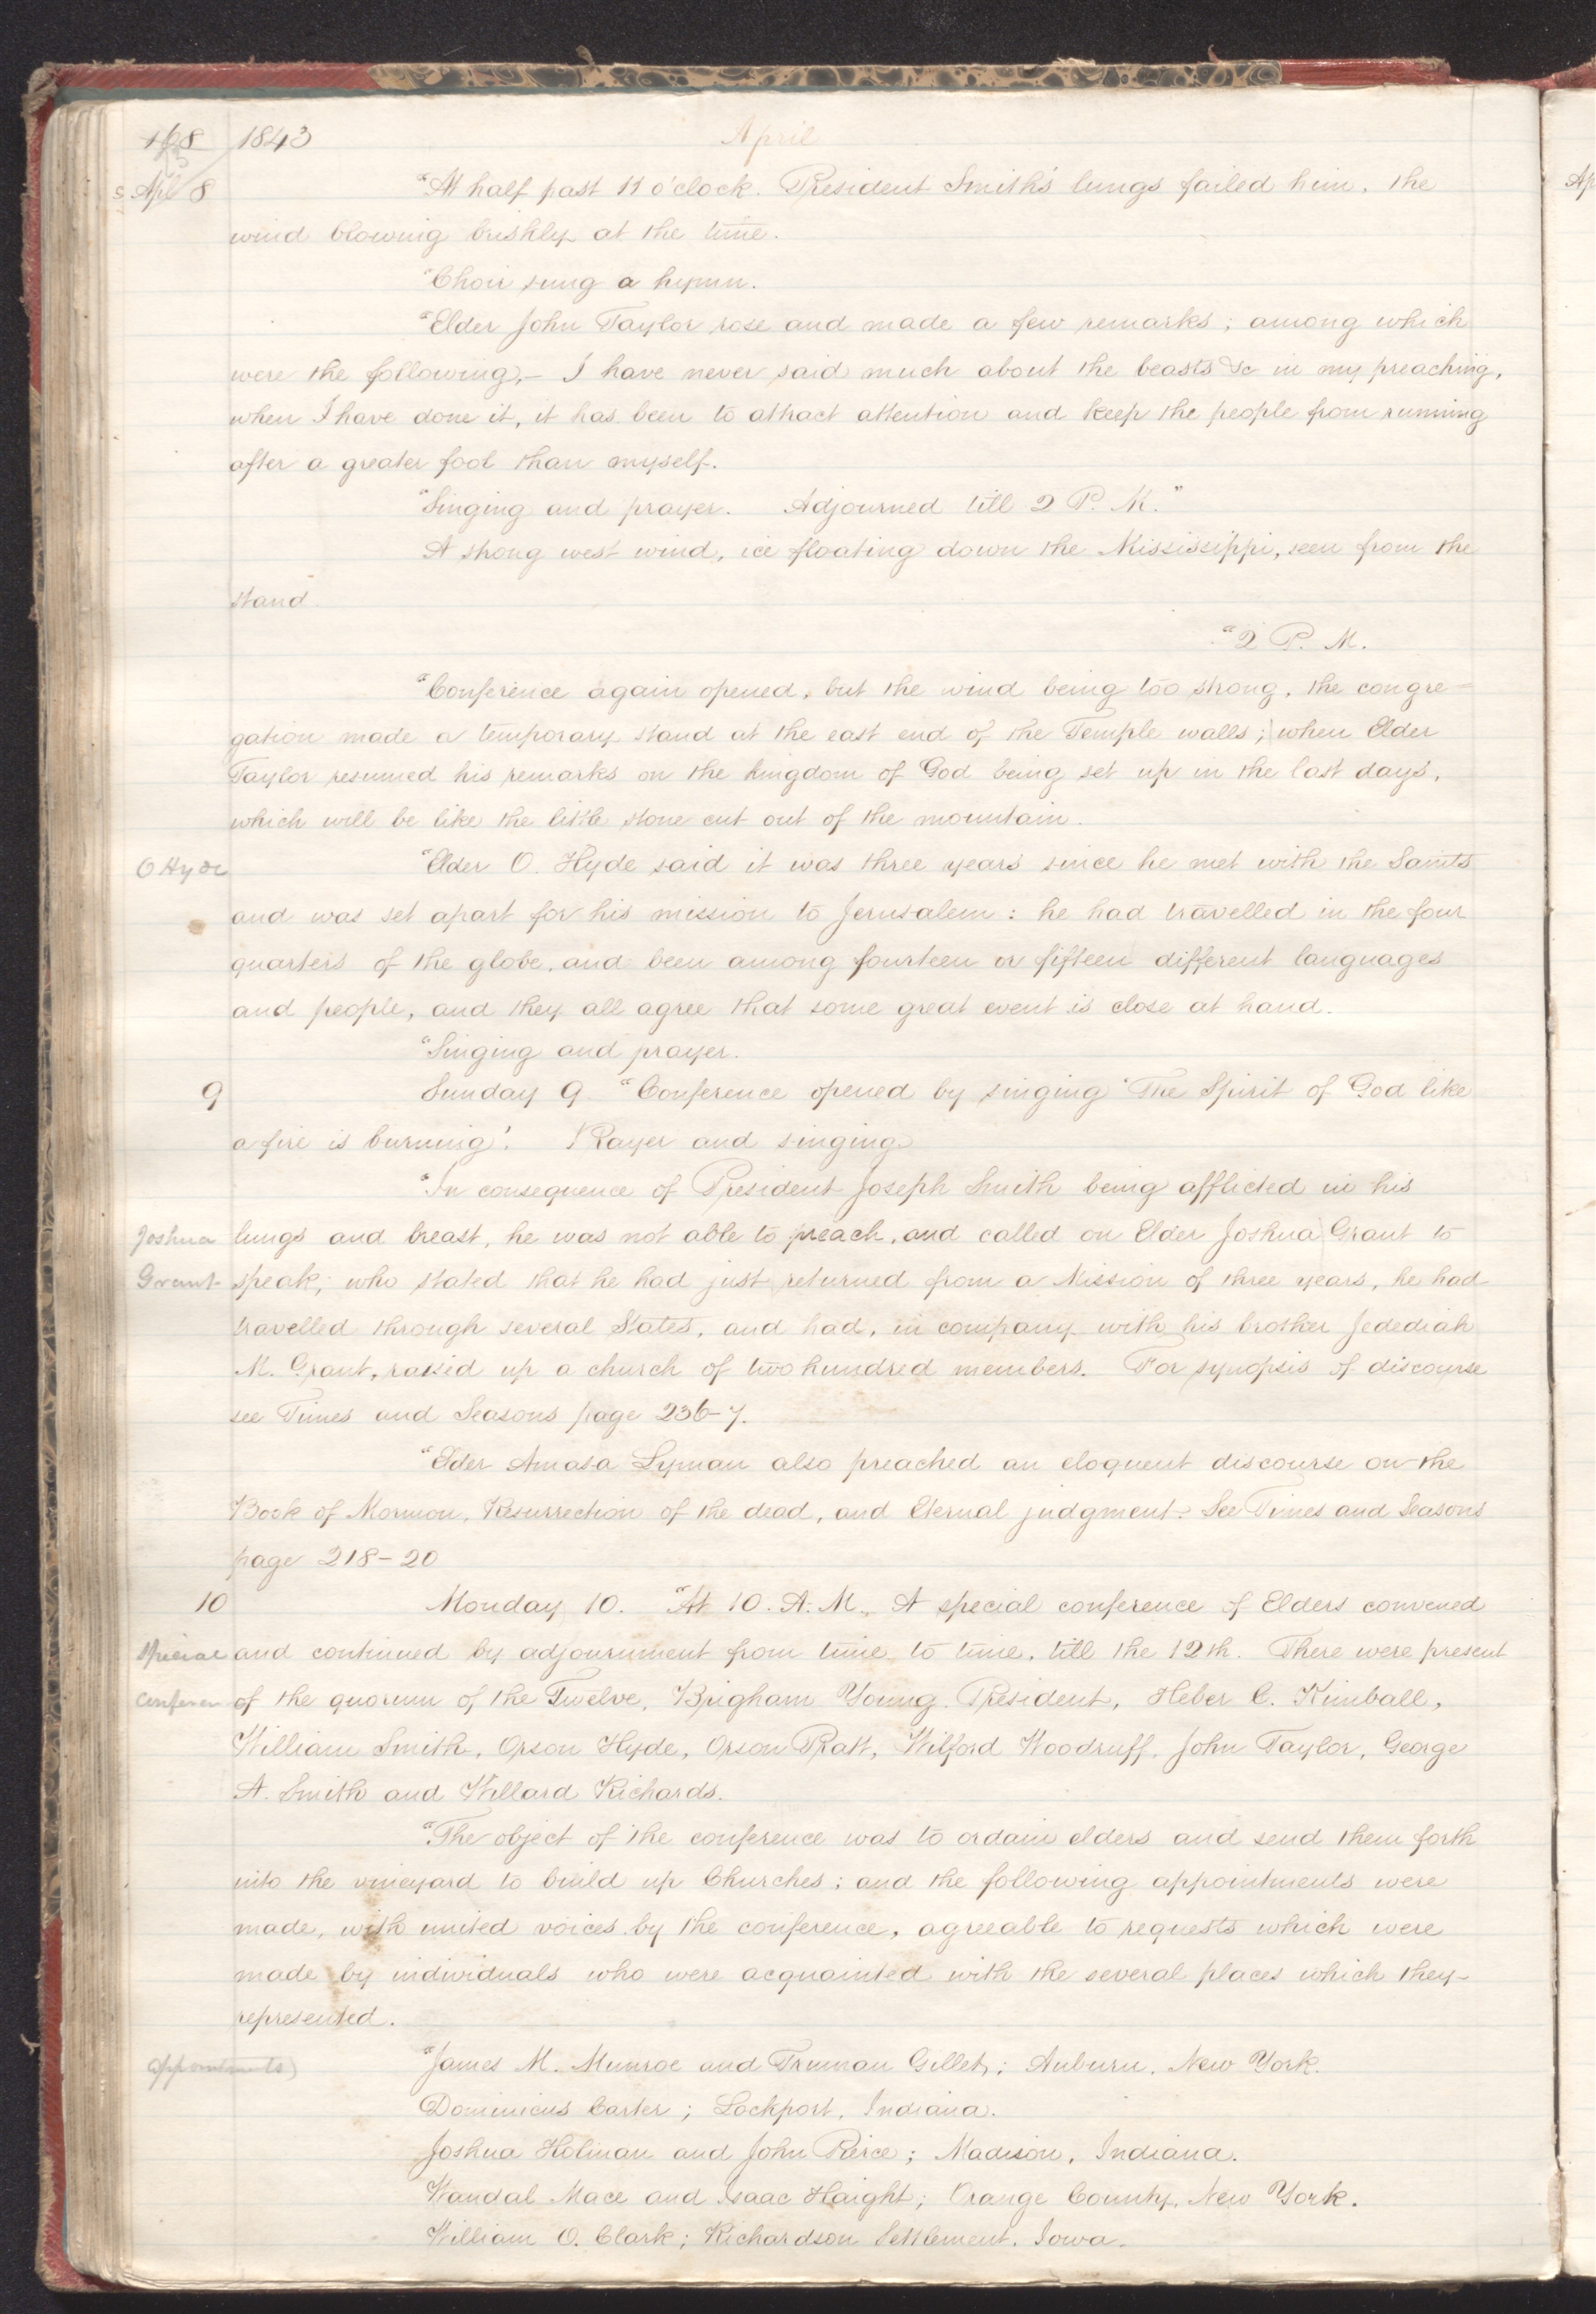 168 1843 April
S. Apl 8 "At half past 11 o'clock. President Smith's lungs failed him, the
wind blowing briskly at the time.
"Choir sung a hymn.
"Elder John Taylor rose and made a few remarks; among which
were the following,– I have never said much about the beasts &c in my preaching,
when I have done it, it has been to attract attention and keep the people from running
after a greater fool than myself.
"Singing and prayer. Adjourned till 2 P. M."
A strong west wind, ice floating down the Mississippi, seen from the
stand.
"2 P. M.
"Conference again opened, but the wind being too strong, the congre=
gation made a temporary stand at the east end of the Temple walls; when Elder
Taylor resumed his remarks on the kingdom of God being set up in the last days,
which will be like the little stone cut out of the mountain.
O Hyde "Elder O. Hyde said it was three years since he met with the Saints
and was set apart for his mission to Jerusalem: he had travelled in the four
quarters of the globe, and been among fourteen or fifteen different languages
and people, and they all agree that some great event is close at hand.
"Singing and prayer.
9 Sunday 9. "Conference opened by singing 'The Spirit of God like
a fire is burning'. Prayer and singing
"In consequence of President Joseph Smith being afflicted in his
Joshua lungs and breast, he was not able to preach, and called on Elder Joshua Grant to
Grant speak; who stated that he had just returned from a Mission of three years, he had
travelled through several States, and had, in company with his brother Jedediah
M. Grant, raised up a church of two hundred members. For synopsis of discourse
see Times and Seasons page 236–7.
"Elder Amasa Lyman also preached an eloquent discourse on the
Book of Mormon, Resurrection of the dead, and Eternal judgment. See Times and Seasons
page 218–20
10 Monday 10. "At 10. A. M., A special conference of Elders convened
special and continued by adjournment from time to time, till the 12th. There were present
conferen of the quorum of the Twelve, Brigham Young. President, Heber C. Kimball,
William Smith, Orson Hyde, Orson Pratt, Wilford Woodruff, John Taylor, George
A. Smith and Willard Richards.
"The object of the conference was to ordain elders and send them forth
into the vineyard to build up Churches; and the following appointments were
made, with united voices by the conference, agreeable to requests which were
made by individuals who were acquainted with the several places which they
represented.
appointments "James M. Munroe and Truman Gillet,; Auburn, New York.
Dominicus Carter; Lockport, Indiana.
Joshua Holman and John Pierce; Madison, Indiana.
Wandal Mace and Isaac Haight; Orange County, New York.
William O. Clark; Richardson Settlement, Iowa.